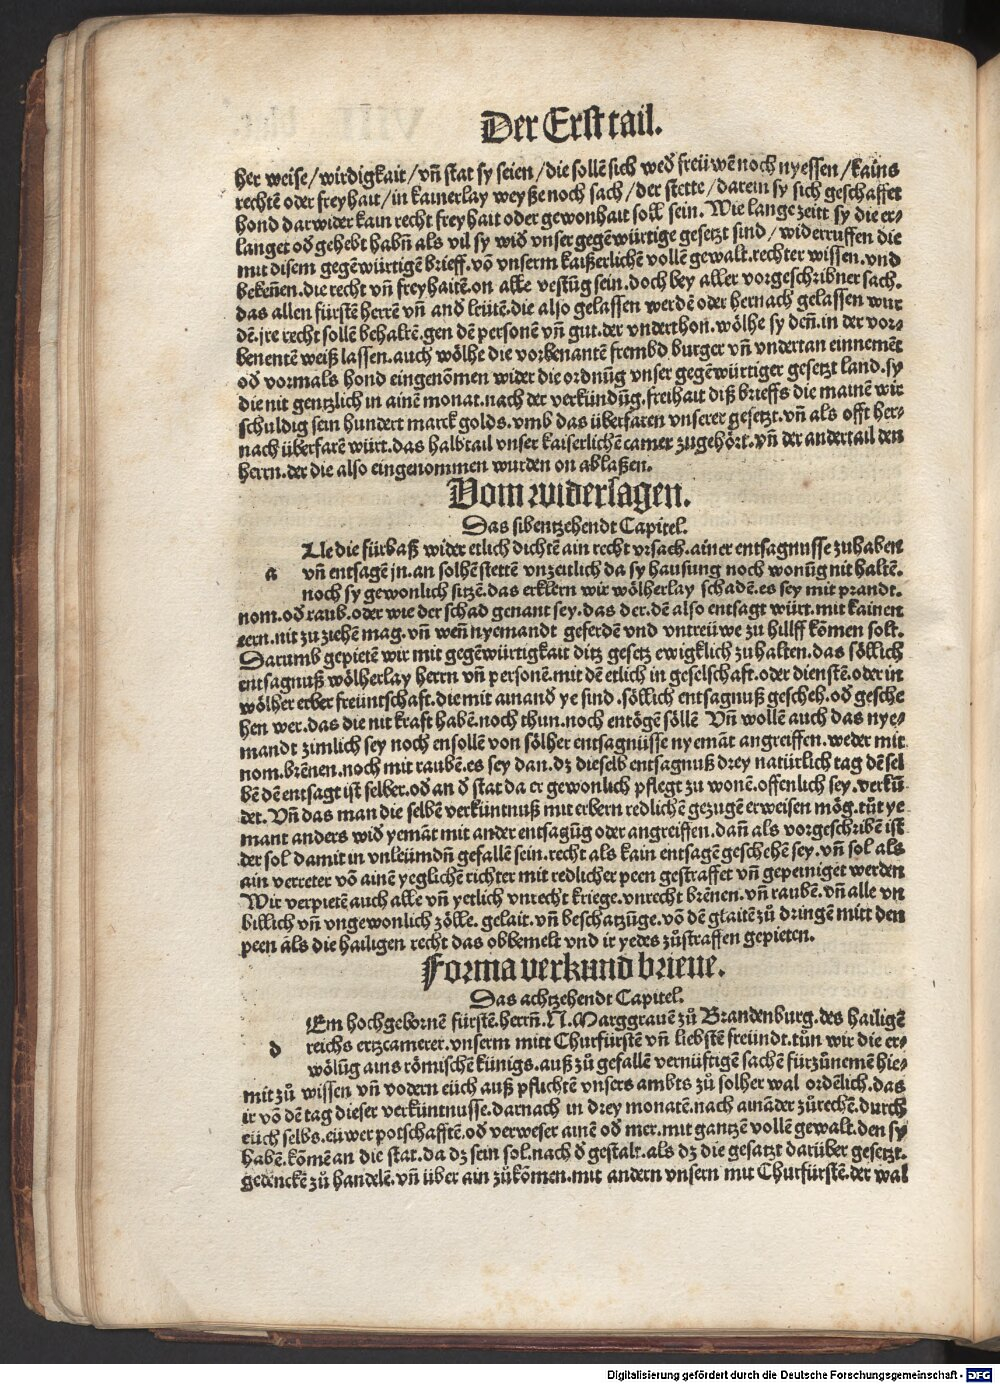 Der Erst tail.
her weise/wirdigkait/vn̄ stat sy seien/die sollē sich wed̄ freüwē noch nyessen/kains
rechtē oder freyhait/in kainerlay weyße noch sach/der stette/darein sy sich geschaffet
hond darwider kain recht freyhait oder gewonhait soll sein. Wie lange zeitt sy die er⸗
langet od̄ gehebt habn̄ als vil sy wid̄ vnser gegēwürtige gesetzt sind/widerruffen die
mit disem gegēwürtigē brieff. vō vnserm kaißerlichē vollē gewalt. rechter wissen. vnd
bekeñen. die recht vn̄ freyhaitē. on alle vestüg sein. doch bey aller vorgeschribner sach.
das allen fürstē herrē vn̄ and̄ leütē. die also gelassen werdē oder hernach gelassen wur
dē. jre recht sollē behaltē. gen dē personē vn̄ gut. der vnderthon. wölhe sy den̄. in der vor⸗
benentē weiß lassen. auch wölhe die vorbenantē frembd burger vn̄ vndertan einnemēt
od̄ vormals hond eingenōmen wider die ordnūg vnser gegēwürtiger gesetzt land. sy
die nit gentzlich in ainē monat. nach der verkündūg. freihait diß brieffs die mainē wir
schuldig sein hundert marck golds. vmb das überfaren vnserer gesetzt. vn̄ als offt her⸗
nach überfarē würt. das halbtail vnser kaiserlichē camer zugehört. vn̄ der andertail den
herrn. der die also eingenommen wurden on ablaßen.
Vom widersagen.
Das sibentzehendt Capitel.
a
Lle die fürbaß wider etlich dichtē ain recht vrsach. ainer entsagnusse zuhaben
vn̄ entsagē jn. an solhē stettē vnzeitlich da sy hausung noch wonūg nit haltē.
noch sy gewonlich sitzē. das erklern wir wölherlay schadē. es sey mit prandt.
nom. od̄ raub. oder wie der schad genant sey. das der. dē also entsagt würt. mit kainen
eern. nit zu ziehē mag. vn̄ wen̄ nyemandt geferdē vnd vntreüwe zu hillff kōmen solt.
Darumb gepietē wir mit gegēwürtigkait ditz gesetz ewigklich zu halten. das söllich
entsagnuß wölherlay herrn vn̄ personē. mit dē etlich in geselschaft. oder dienstē. oder in
wölher erber freüntschaft. die mit ainand̄ ye sind. söllich entsagnuß gescheh. od̄ gesche
hen wer. das die nit kraft habē. noch thun. noch entögē söllē Vn̄ wollē auch das nye⸗
mandt zimlich sey noch ensollē von sölher entsagnüsse nyemāt angreiffen. weder mit
nom. brēnen. noch mit raubē. es sey dan. dz dieselb entsagnuß drey natürlich tag dē sel
bē dē entsagt ist selber. od̄ an d̄ stat da er gewonlich pflegt zu wonē. offenlich sey. verkü
det. Vn̄ das man die selbē verküntnuß mit erbern redlichē gezugē erweisen mög. tūt ye
mant anders wid̄ yemāt mit ander entsagūg oder angreiffen. dan̄ als vorgeschribē ist
der sol damit in vnleümdn̄ gefallē sein. recht als kain entsagē geschehē sey. vn̄ sol als
ain verreter vō ainē yeglichē richter mit redlicher peen gestraffet vn̄ gepeiniget werden
Wir verpietē auch alle vn̄ yetlich vnrecht kriege. vnrecht brēnen. vn̄ raubē. vn̄ alle vn
billich vn̄ vngewonlich zölle. gelait. vn̄ beschatzūge. vō dē glaitē zů dringē mitt den
peen als die hailigen recht das obbemelt vnd ir yedes zůstraffen gepieten.
Forma verkund brieue.
Das achtzehendt Capitel.
d
Em hochgebornē fürstē. herrn̄. N. Marggrauē zů Brandenburg. des hailigē
reichs ertzcamerer. vnserm mitt Churfürstē vn̄ liebstē freündt. tůn wir die er⸗
wölūg ains römischē künigs. auß zů gefallē vernüftigē sachē fürzůnemē hie⸗
mit zů wissen vn̄ vodern eüch auß pflichtē vnsers ambts zů solher wal ordēlich. das
ir vō dē tag dieser verküntnusse. darnach in drey monatē. nach aināder zůrechē. durch
eüch selbs. eüwer potschafftē. od̄ verweser ainē od̄ mer. mit gantzē vollē gewalt. den sy
habē. kōmē an die stat. da dz sein sol. nach d̄ gestalt. als dz die gesatzt darüber gesetzt.
gedenckē zů handelē. vn̄ über ain zůkōmen. mit andern vnsern mit Churfürstē. der wal
Digitalisierung gefördert durch die Deutsche Forschungsgemeinschaft - DFG